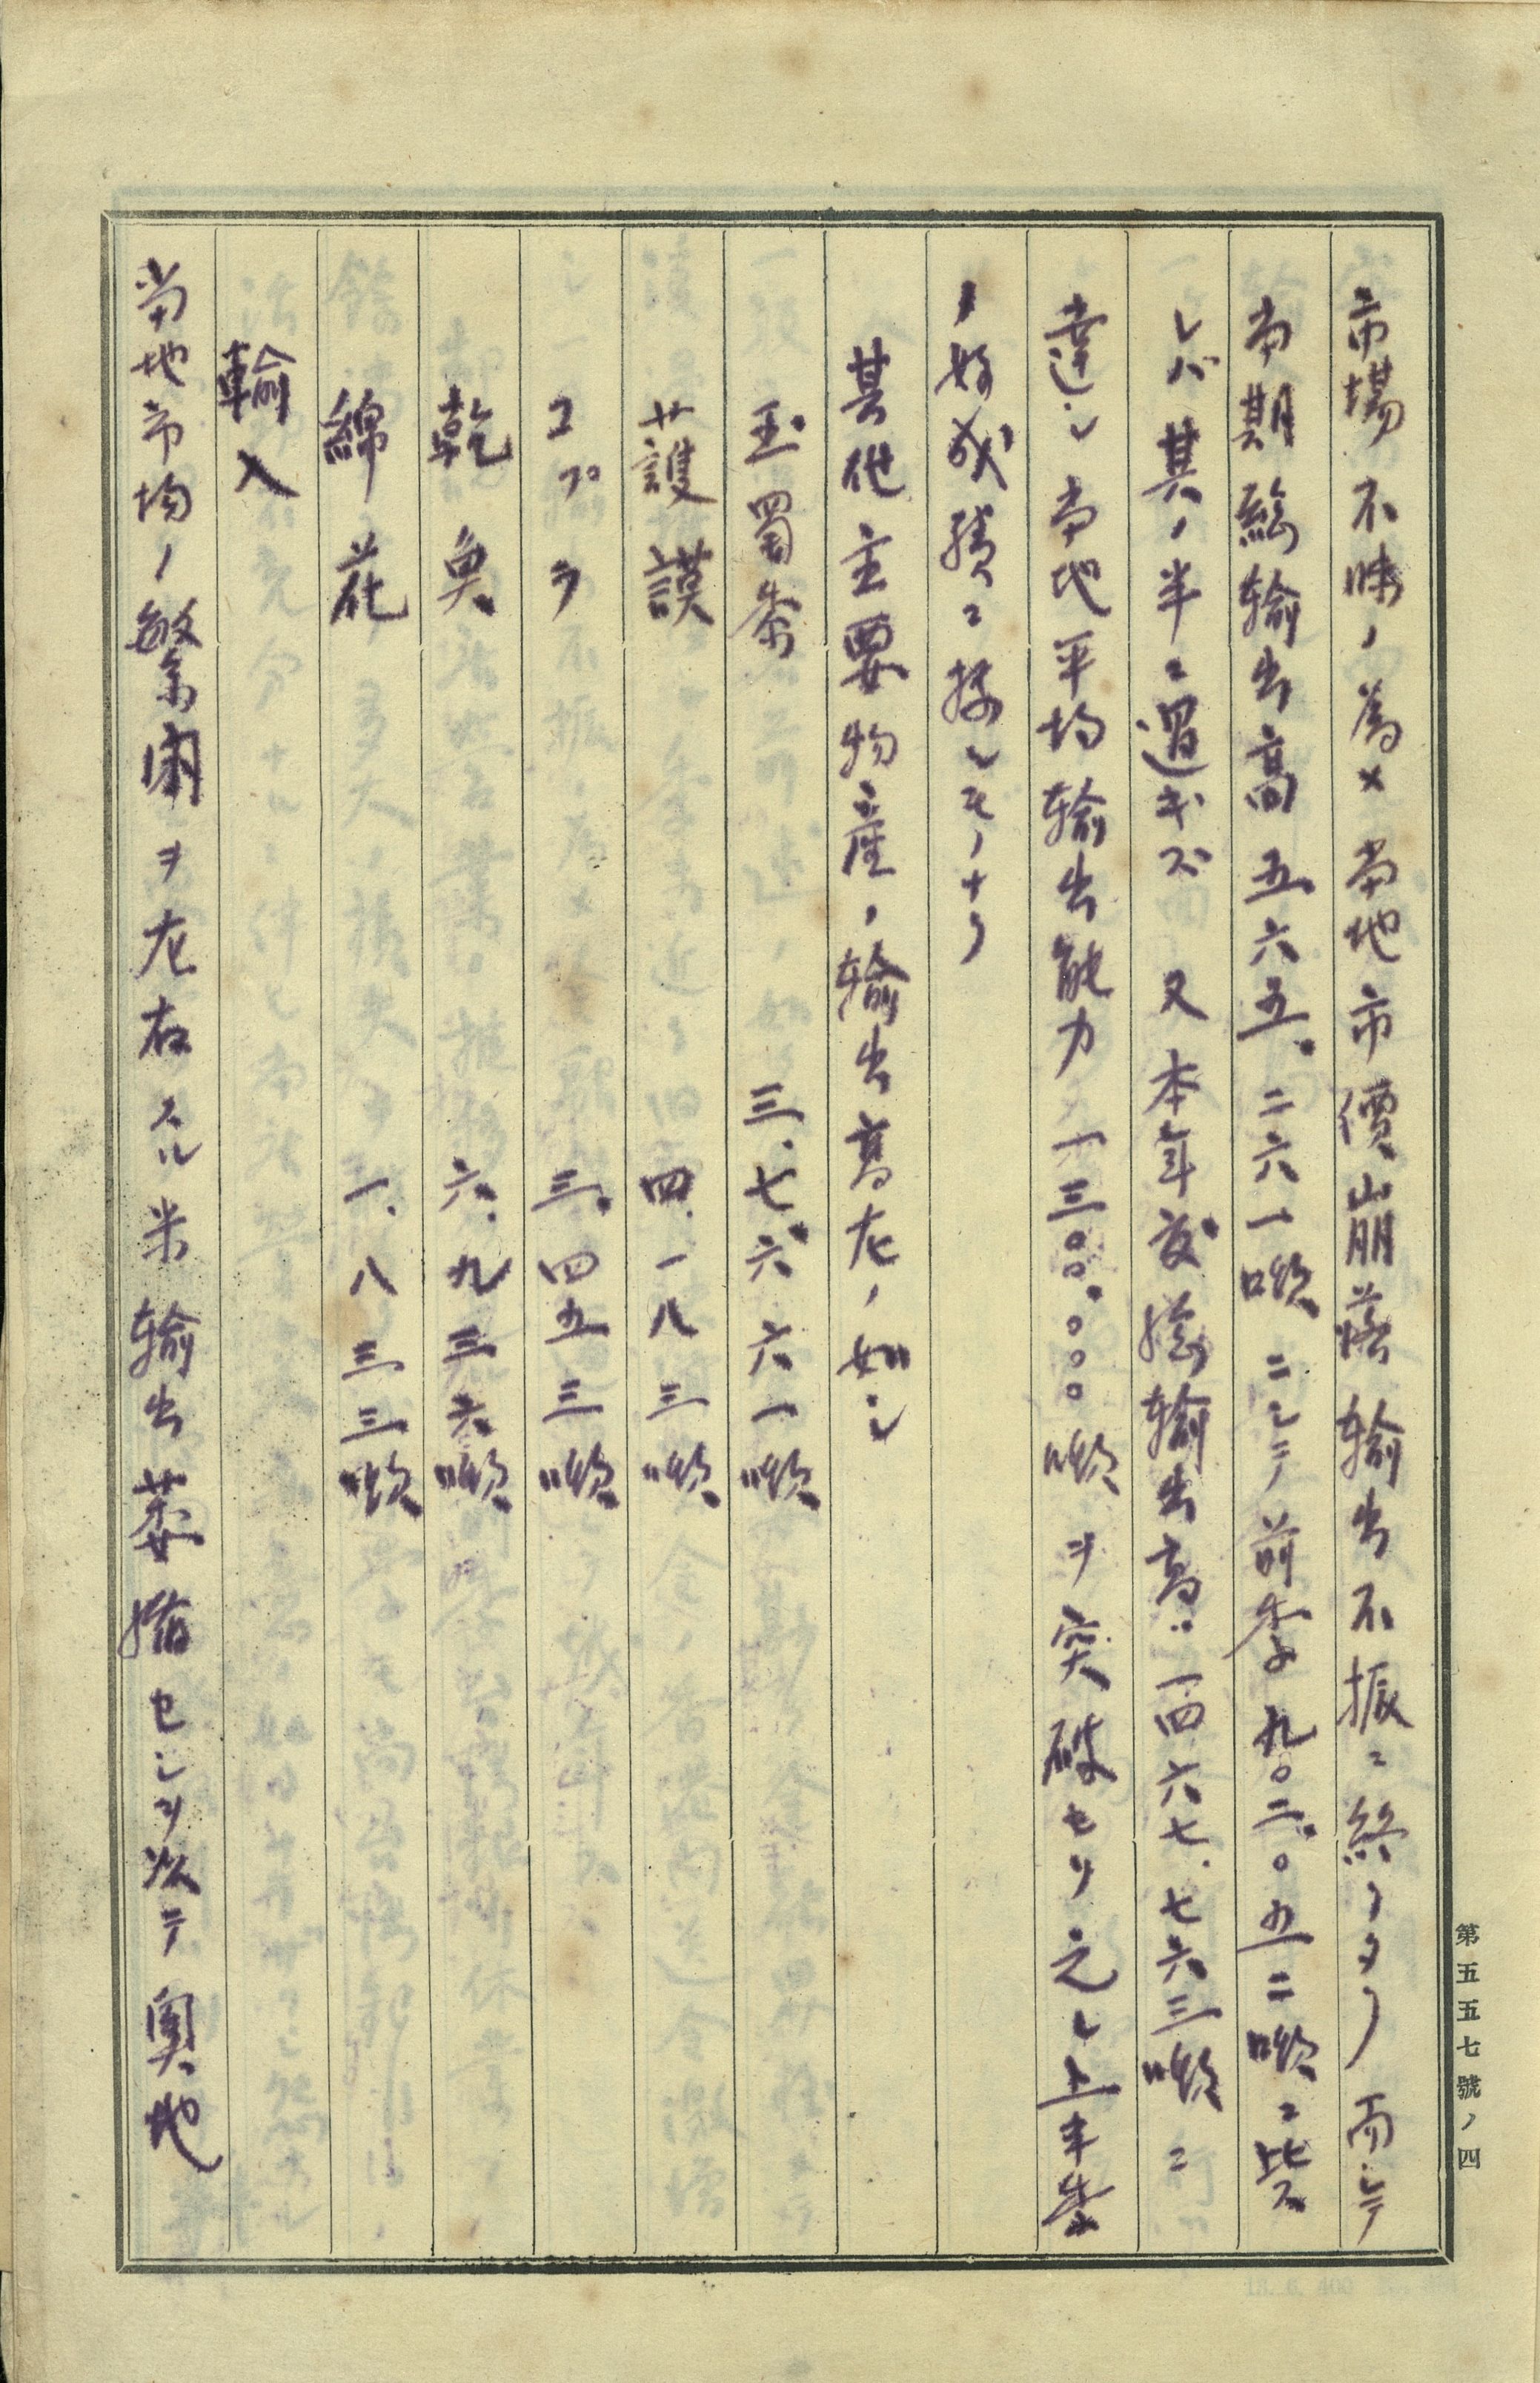 市場不味ノ為メ當地市價崩落輸出不振ニ終リタリ而シテ
當期総輸出高五六五.二六一噸ニシテ前季九〇二.〇五二噸ニ比ス
レバ其ノ半ニ過ギズ又本年度総輸出高ハ一四六七.七六三噸ニ
達シ當地平均輸出能力一三〇〇.〇〇〇噸ヲ突破セリ之レ上半季
ノ好成績ニ據レモノナリ
其他主要物産ノ輸出高左ノ如シ
玉蜀黍 三.七六六一噸
護謨 四.一八三噸
コプラ 三.四五三噸
乾魚 六.九三六噸
綿花 一.八三三噸
輸入
當地市場ノ繁閑ヲ左右スル米輸出萎擶セシヲ以テ奥地
第五五七號ノ四